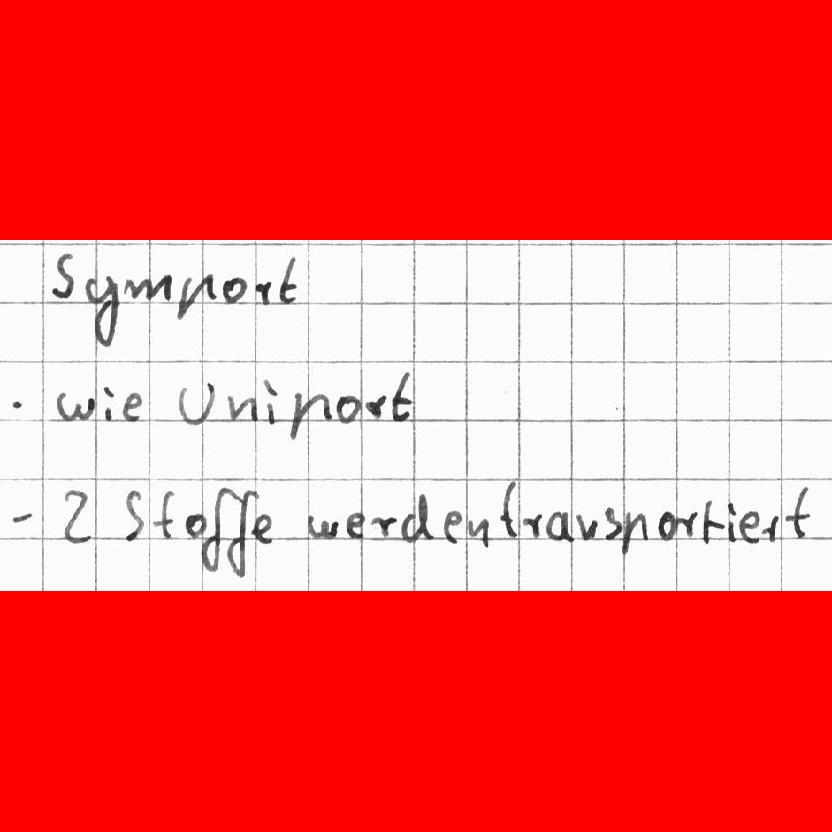 Symport
· wie Uniport
- 2 Stoffe werden transportiert